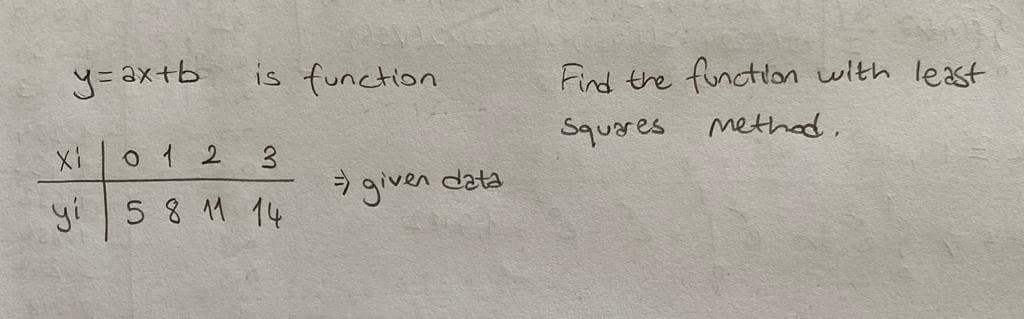 y=ax+b is function
Find the function with least
squares method.
xi | 0 1 2 3
yi | 5 8 11 14
⇒ given data